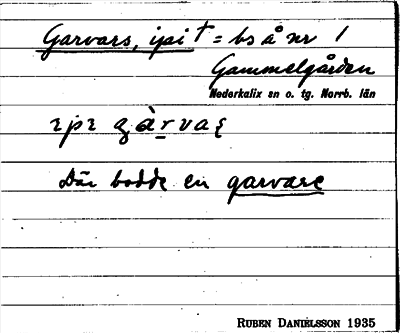 Garvars, ipi † = bs å nr 1
Gammelgården
Nederkalix sn o. tg. Norrb. län
Där bodde en garvare
RUBEN DANIELSSON 1935